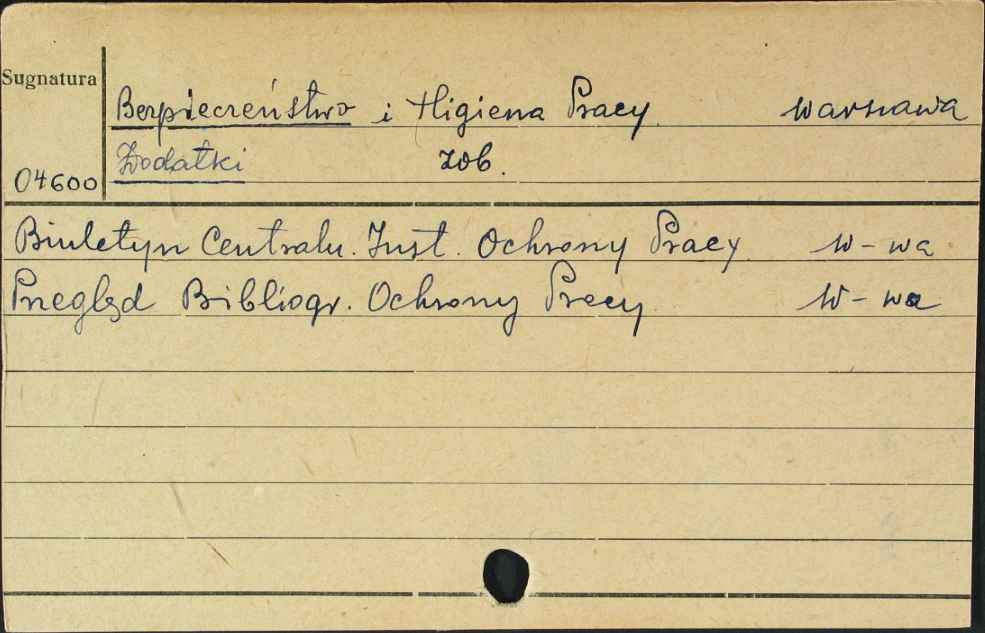 Sugnatura
Bezpieczeństwo i Higiena Pracy Warszawa
Dodatki zob.
04600
Biuletyn Centraln. Inst. Ochrony Pracy W-wa
Przegląd Bibliogr. Ochrony Pracy W-wa